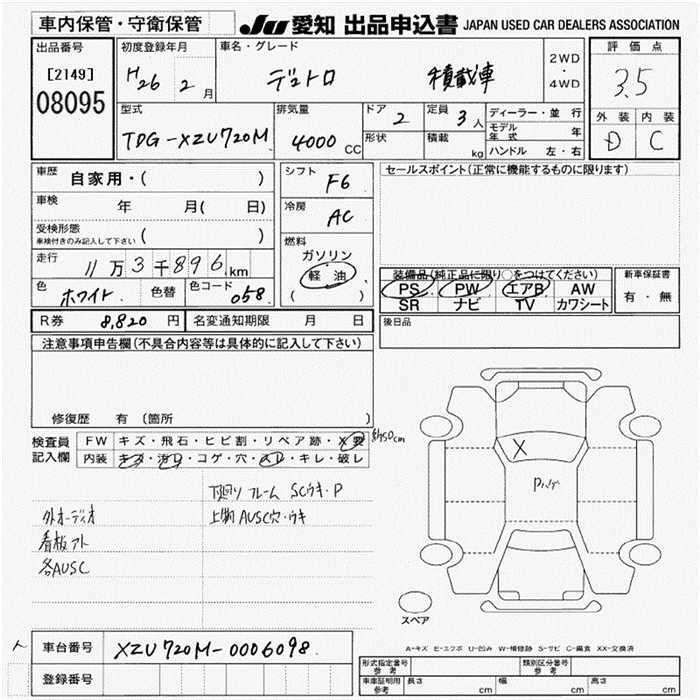 車内保管・守衛保管
JU 愛知 出品申込書 JAPAN USED CAR DEALERS ASSOCIATION
出品番号
[2149]
08095
初度登録年月
H26 2 月
車名・グレード
デュトロ 積載車
2WD
・
4WD
評価点
3.5
外装 内装
D C
型式
TDG-XZU720M
排気量
4000 CC
ドア 2
形状
定員 3 人
積載 kg
ディーラー・並行
モデル年式 年
ハンドル 左・右
車歴 自家用・( )
車検 年 月( 日)
受検形態
車検付きのみ記入して下さい ( )
走行 11万3千896km
色 ホワイト 色替 色コード 058
シフト F6
冷房 AC
燃料
ガソリン
軽油
( )
セールスポイント(正常に機能するものに限ります)
装備品(純正品に限り○をつけてください)
PS PW エアB AW
SR ナビ TV カワシート
新車保証書
有・無
後日品
R券 8,820 円 名変通知期限 月 日
注意事項申告欄(不具合内容等は具体的に記入して下さい)
修復歴 有 (箇所 )
検査員
記入欄
FW キズ・飛石・ヒビ割・リペア跡・X要
内装 キズ・汚れ・コゲ・穴・スレ・キレ・破レ
下回り フレーム SCウキ・P
外オーディオ 上物 AUSC穴・ウキ
看板アト
各AUSC
X
スペア
A-キズ E-エクボ U-凹み W-補修跡 S-サビ C-腐食 XX-交換済
車台番号 XZU720M-0006098
登録番号
形式指定番号 参考 類別区分番号 参考
車庫証明用 参考 長さ cm 幅 cm 高さ cm